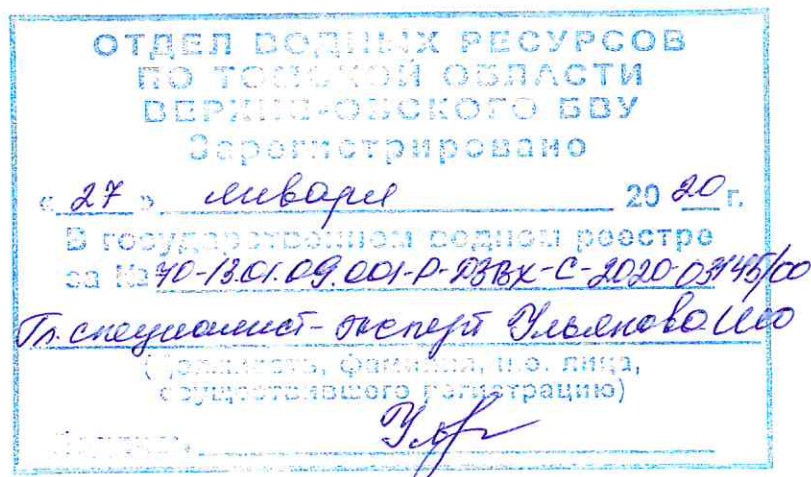 ОТДЕЛ ВОДНЫХ РЕСУРСОВ
ПО ТОМСКОЙ ОБЛАСТИ
ВЕРХНЕ-ОБСКОГО БВУ
Зарегистрировано
« 27 » января 20 20 г.
В государственном водном реестре
за № 70-13.01.09.001-Р-ДЗВХ-С-2020-03145/00
Гл. специалист-эксперт Ульянова
(должность, фамилия, и.о. лица,
осуществившего регистрацию)
Подпись